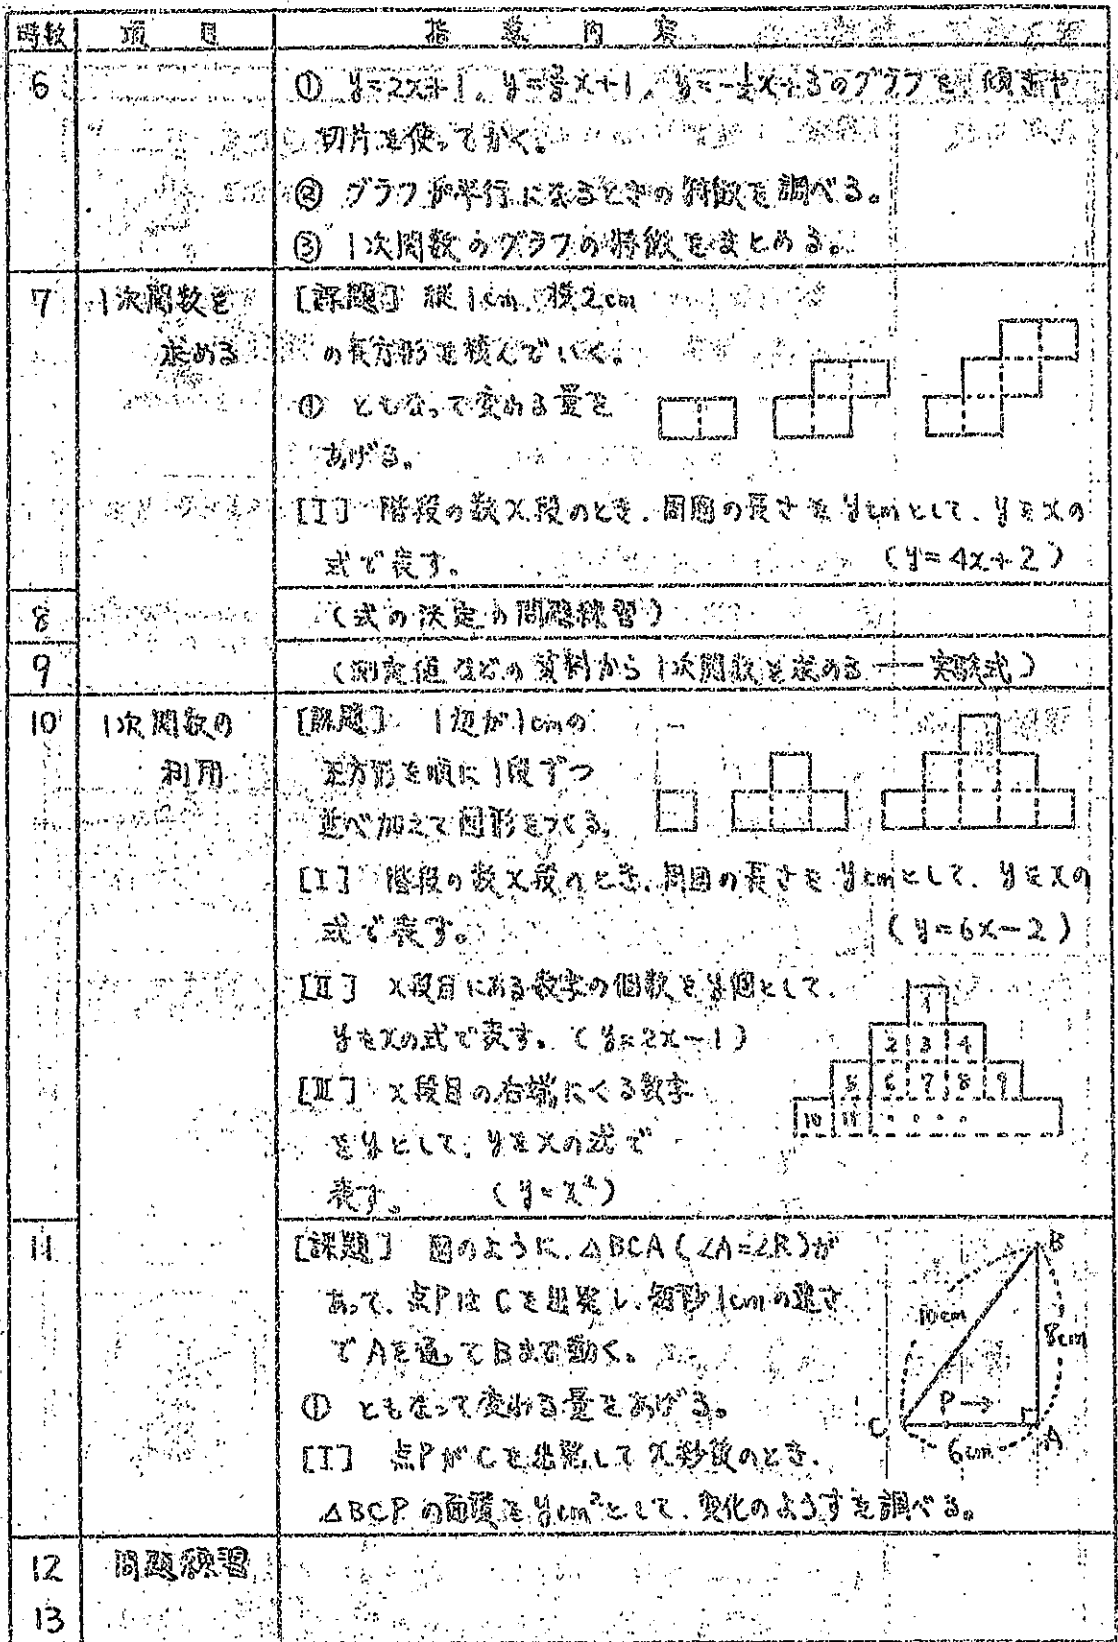 時数 項目 指導内容
6 ① y=2x+1, y=⅔x+1, y=-½x+3のグラフを、傾きや
切片を使ってかく。
② グラフが平行になるときの特徴を調べる。
③ 1次関数のグラフの特徴をまとめる。
7 1次関数を [課題] 縦1cm、横2cm
求める の長方形を積んでいく。
① ともなって変わる量を
あげる。
[I] 階段の数x段のとき、周囲の長さをycmとして、yをxの
式で表す。 (y=4x+2)
8 (式の決定の問題練習)
9 (測定値などの資料から1次関数を求める——実験式)
10 1次関数の [課題] 1辺が1cmの
利用 正方形を順に1段ずつ
並べ加えて図形をつくる。
[I] 階段の数x段のとき、周囲の長さをycmとして、yをxの
式で表す。 (y=6x-2)
[II] x段目にある数字の個数をy個として、
yをxの式で表す。(y=2x-1)
1
2 3 4
5 6 7 8 9
10 11 ・・・
[III] x段目の右端にくる数字
をyとして、yをxの式で
表す。 (y=x²)
11 [課題] 図のように、△BCA(∠A=∠R)が
あって、点PはCを出発し、毎秒1cmの速さ
でAを通ってBまで動く。
① ともなって変わる量をあげる。
[I] 点PがCを出発してx秒後のとき、
△BCPの面積をycm²として、変化のようすを調べる。
B
10cm
8cm
P→
C
6cm
A
12 問題練習
13